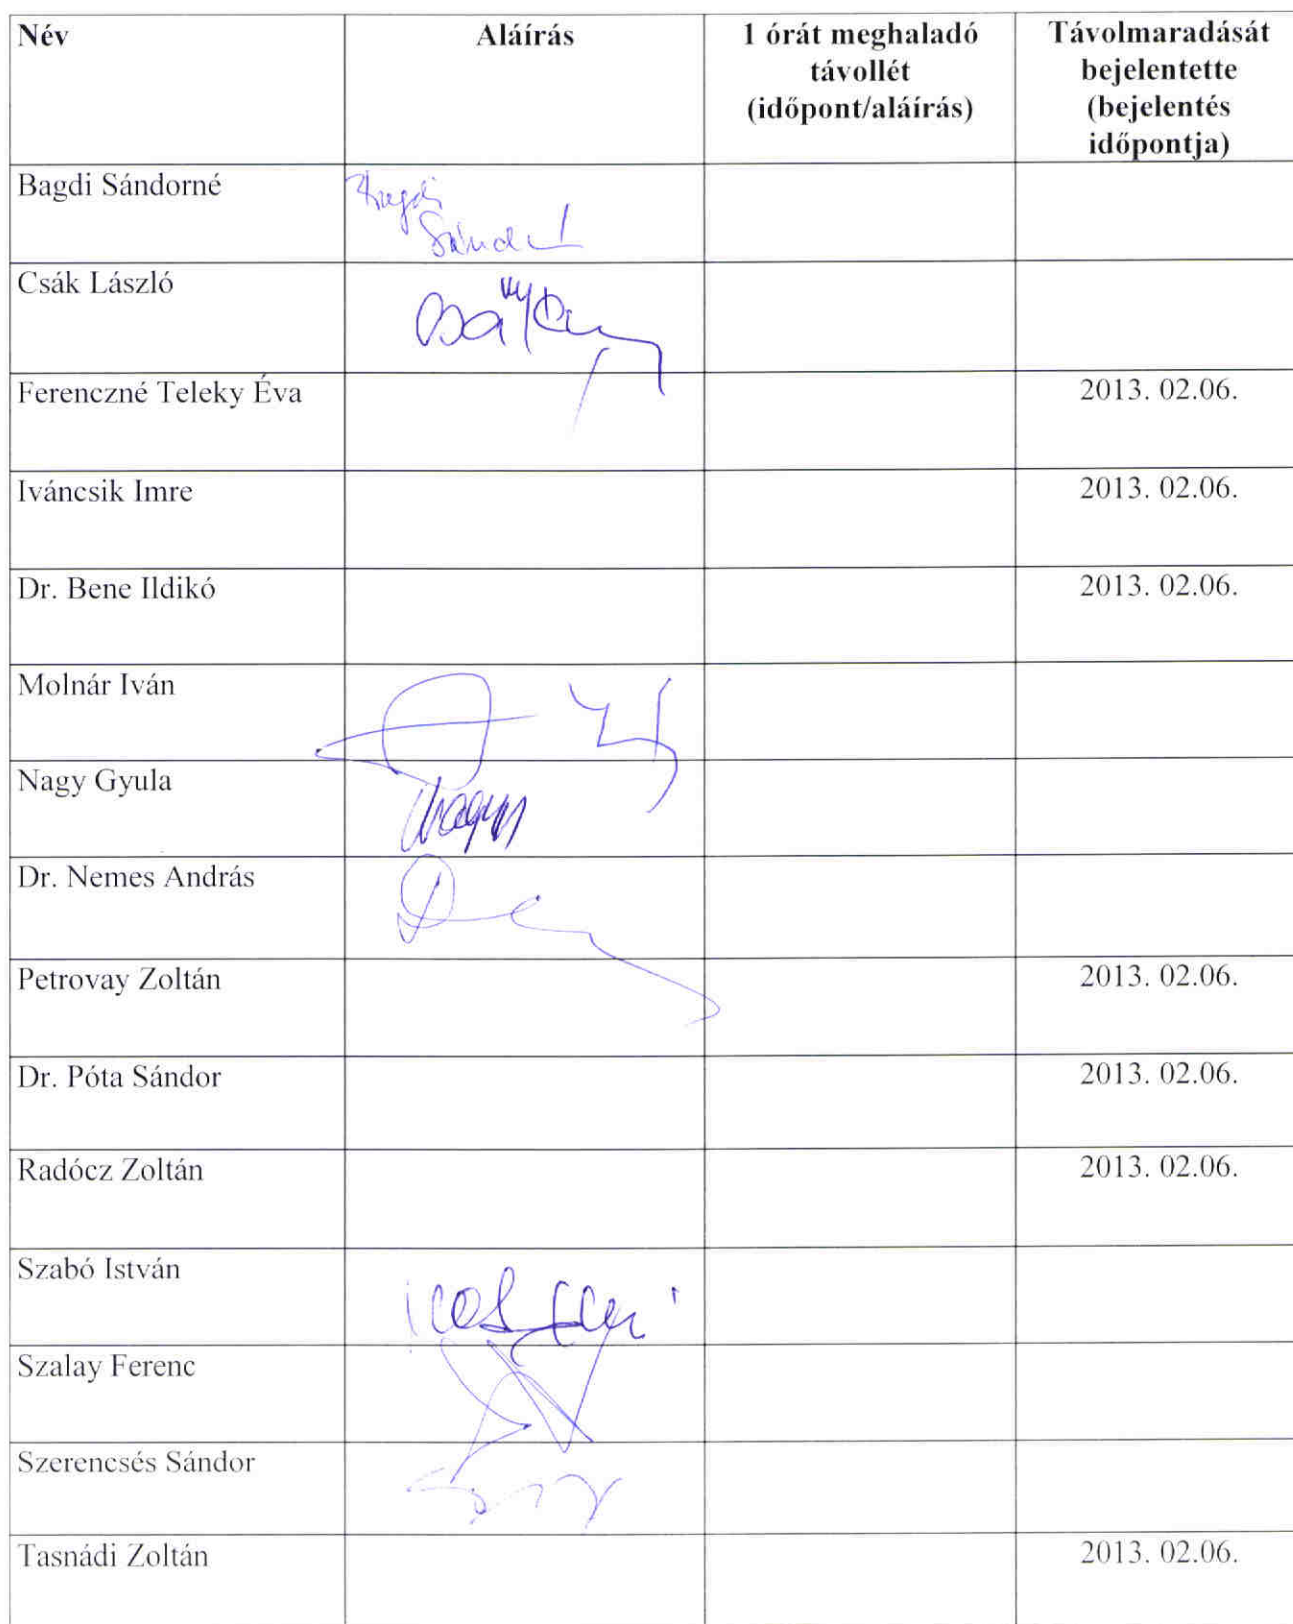 Név Aláírás 1 órát meghaladó Távolmaradását
távollét bejelentette
(időpont/aláírás) (bejelentés
időpontja)
Bagdi Sándorné
Bagdi
Csák László
Ferenczné Teleky Éva 2013. 02.06.
Iváncsik Imre 2013. 02.06.
Dr. Bene Ildikó 2013. 02.06.
Molnár Iván
Nagy Gyula
Nagy
Dr. Nemes András
Petrovay Zoltán 2013. 02.06.
Dr. Póta Sándor 2013. 02.06.
Radócz Zoltán 2013. 02.06.
Szabó István
Szalay Ferenc
Szerencsés Sándor
Tasnádi Zoltán 2013. 02.06.